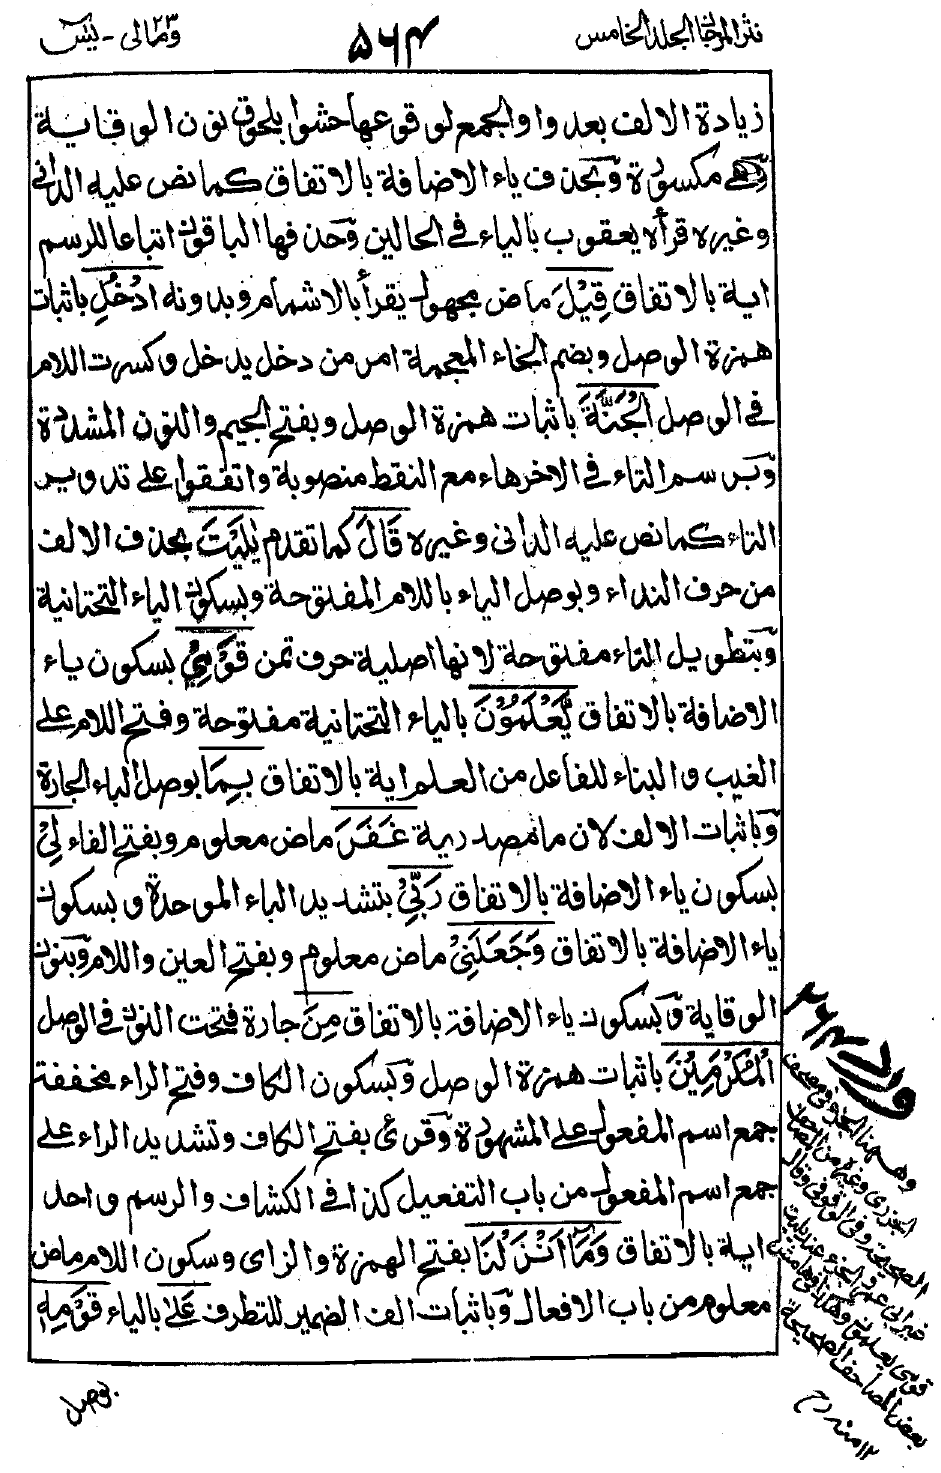 نثر المرجان الجلد الخامس
٥٦٤
ومالى ٢٣ - يٰسٓ
زيادة الالف بعد واو الجمع لوقوعها حشوا بلحوق نون الوقاية
وهى مكسورة وبحذف ياء الاضافة بالاتفاق كما نص عليه الدانى
وغيره قرأه يعقوب بالياء فى الحالين وحذفها الباقون اتباعا للرسم
اية بالاتفاق قِيْلَ ماض مجهول يقرأ بالاشمام وبدونه ادْخُلِ باثبات
همزة الوصل وبضم الخاء المعجمة امر من دخل يدخل وكسرت اللام
فى الوصل الْجَنَّةَ باثبات همزة الوصل وبفتح الجيم والنون المشددة
وبرسم التاء فى الاخر هاء مع النقط منصوبة واتفقوا على تدوير
التاء كما نص عليه الدانى وغيره قَالَ كما تقدم يٰلَيْتَ بحذف الالف
من حرف النداء وبوصل الياء باللام المفتوحة وبسكون الياء التحتانية
وبتطويل التاء مفتوحة لانها اصلية حرف تمن قَوْمِىْ بسكون ياء
الاضافة بالاتفاق يَعْلَمُوْنَ بالياء التحتانية مفتوحة وفتح اللام على
الغيب والبناء للفاعل من العلم اية بالاتفاق بِمَا بوصل الباء الجارة
وباثبات الالف لان ما مصدرية غَفَرَ ماض معلوم وبفتح الفاء لِىْ
بسكون ياء الاضافة بالاتفاق رَبِّىْ بتشديد الباء الموحدة وبسكون
ياء الاضافة بالاتفاق وَجَعَلَنِىْ ماض معلوم وبفتح العين واللام وبنون
الوقاية وبسكون ياء الاضافة بالاتفاق مِنَ جارة فتحت النون فى الوصل
الْمُكْرَمِيْنَ باثبات همزة الوصل وبسكون الكاف وفتح الراء مخففة
جمع اسم المفعول على المشهورة وقرئ بفتح الكاف وتشديد الراء على
جمع اسم المفعول من باب التفعيل كذا فى الكشاف والرسم واحد
اية بالاتفاق وَمَا اَنْزَلْنَا بفتح الهمزة والزاى وسكون اللام ماض
معلوم من باب الافعال وباثبات الف الضمير للتطرف عَلٰى بالياء قَوْمِهٖ
بوصل
وهـ هذا الحذف فى مصحف
الجزرى وغيره من المصاحف
الصحيحة وفى
قومى يعلمون وهكذا فى هامش
بعض المصاحف الصحيحة
١٢ منه رح